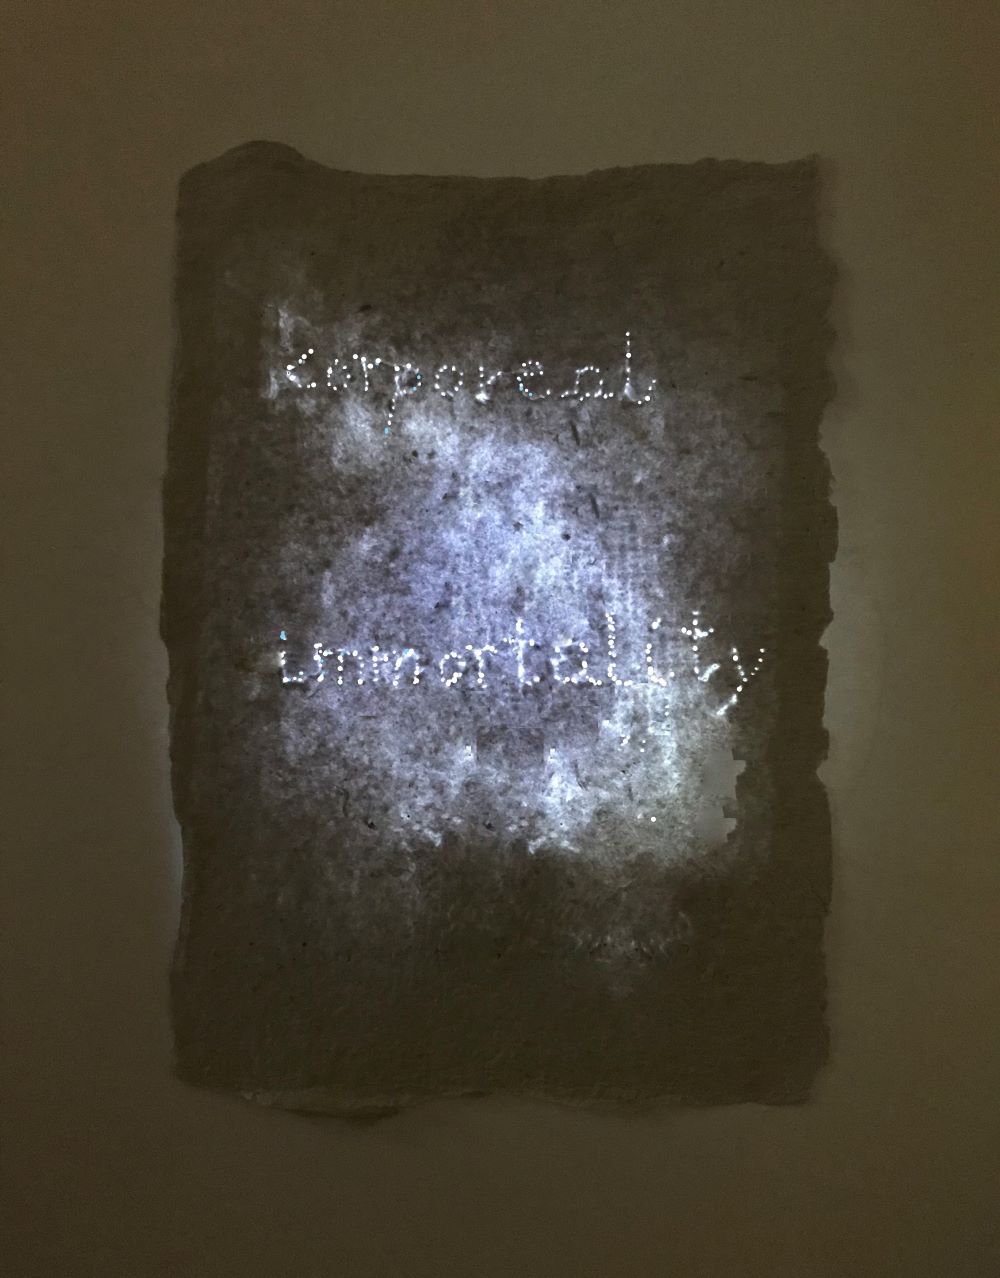 Korporeal
immortality